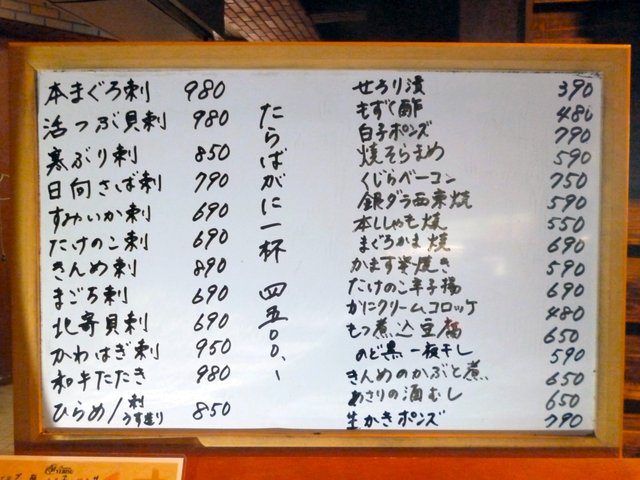 本まぐろ刺 980
活つぶ貝刺 980
寒ぶり刺 850
日向さば刺 790
すみいか刺 690
たけのこ刺 690
きんめ刺 890
まごち刺 690
北寄貝刺 690
かわはぎ刺 950
和牛たたき 980
ひらめ/刺 うす造り 850
たらばがに一杯 四五〇〇.-
せろり漬 390
もずく酢 480
白子ポンズ 790
焼そらまめ 590
くじらベーコン 750
銀ダラ西京焼 590
本ししゃも焼 550
まぐろかま焼 690
かます焼き 590
たけのこ辛子揚 690
かにクリームコロッケ 480
もつ煮込豆腐 650
のど黒一夜干し 590
きんめのかぶと煮 650
あさりの酒むし 650
生かきポンズ 790